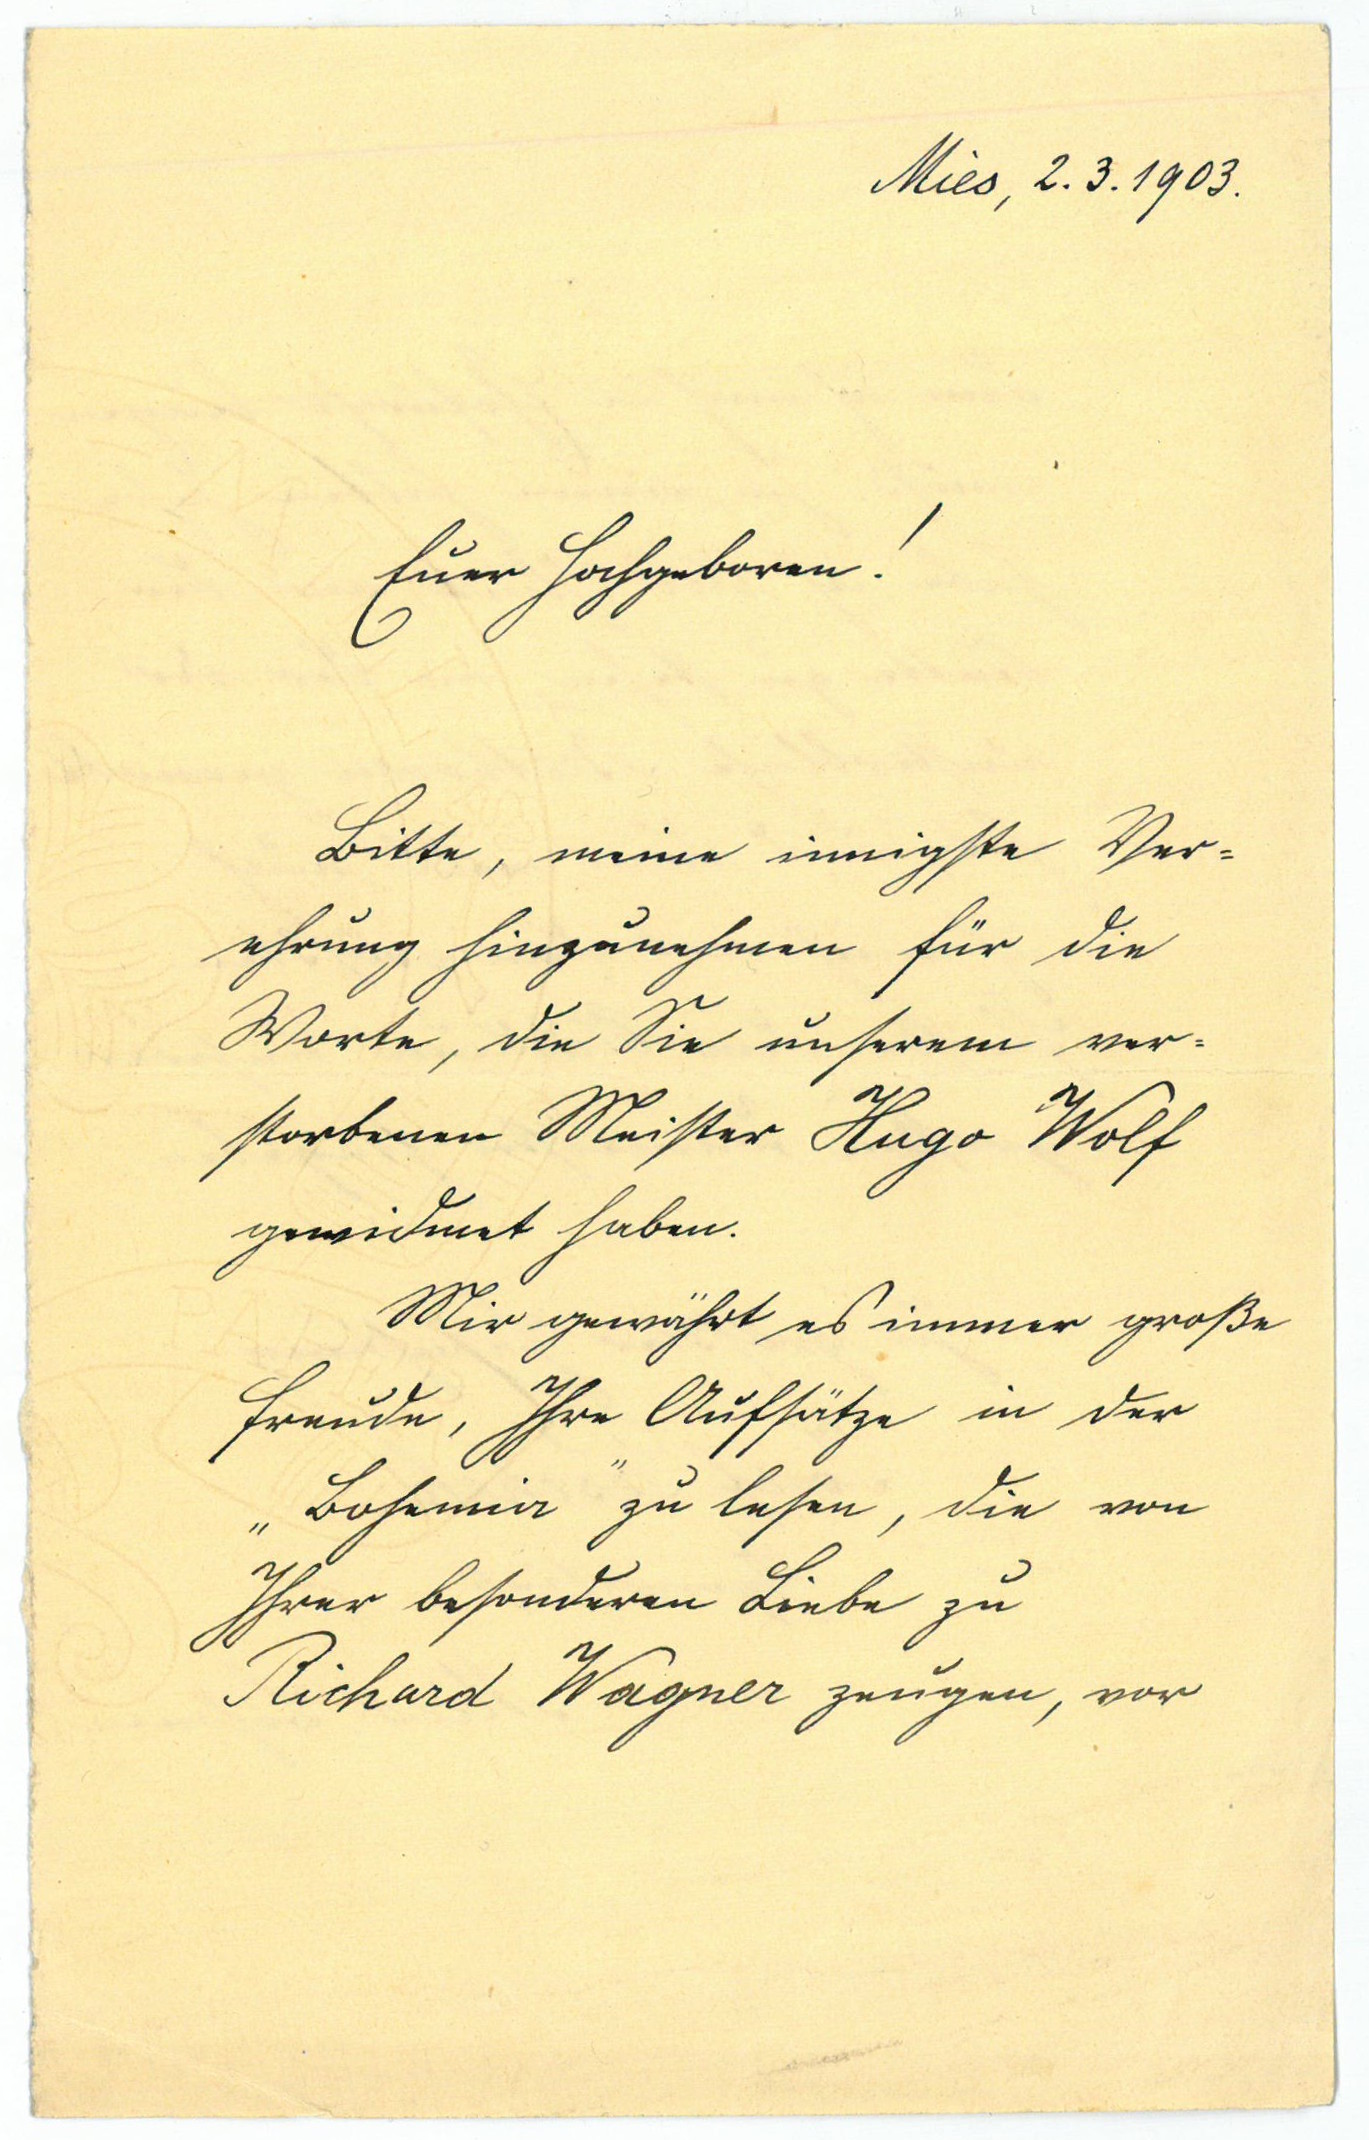 Mies, 2. 3. 1903.
Euer Hochgeboren!
Bitte, meine innigste Ver=
ehrung hinzunehmen für die
Worte, die Sie unserem ver=
storbenen Meister Hugo Wolf
gewidmet haben.
Mir gewährt es immer große
Freude, Ihre Aufsätze in der
„Bohemia" zu lesen, die von
Ihrer besonderen Liebe zu
Richard Wagner zeugen, vor